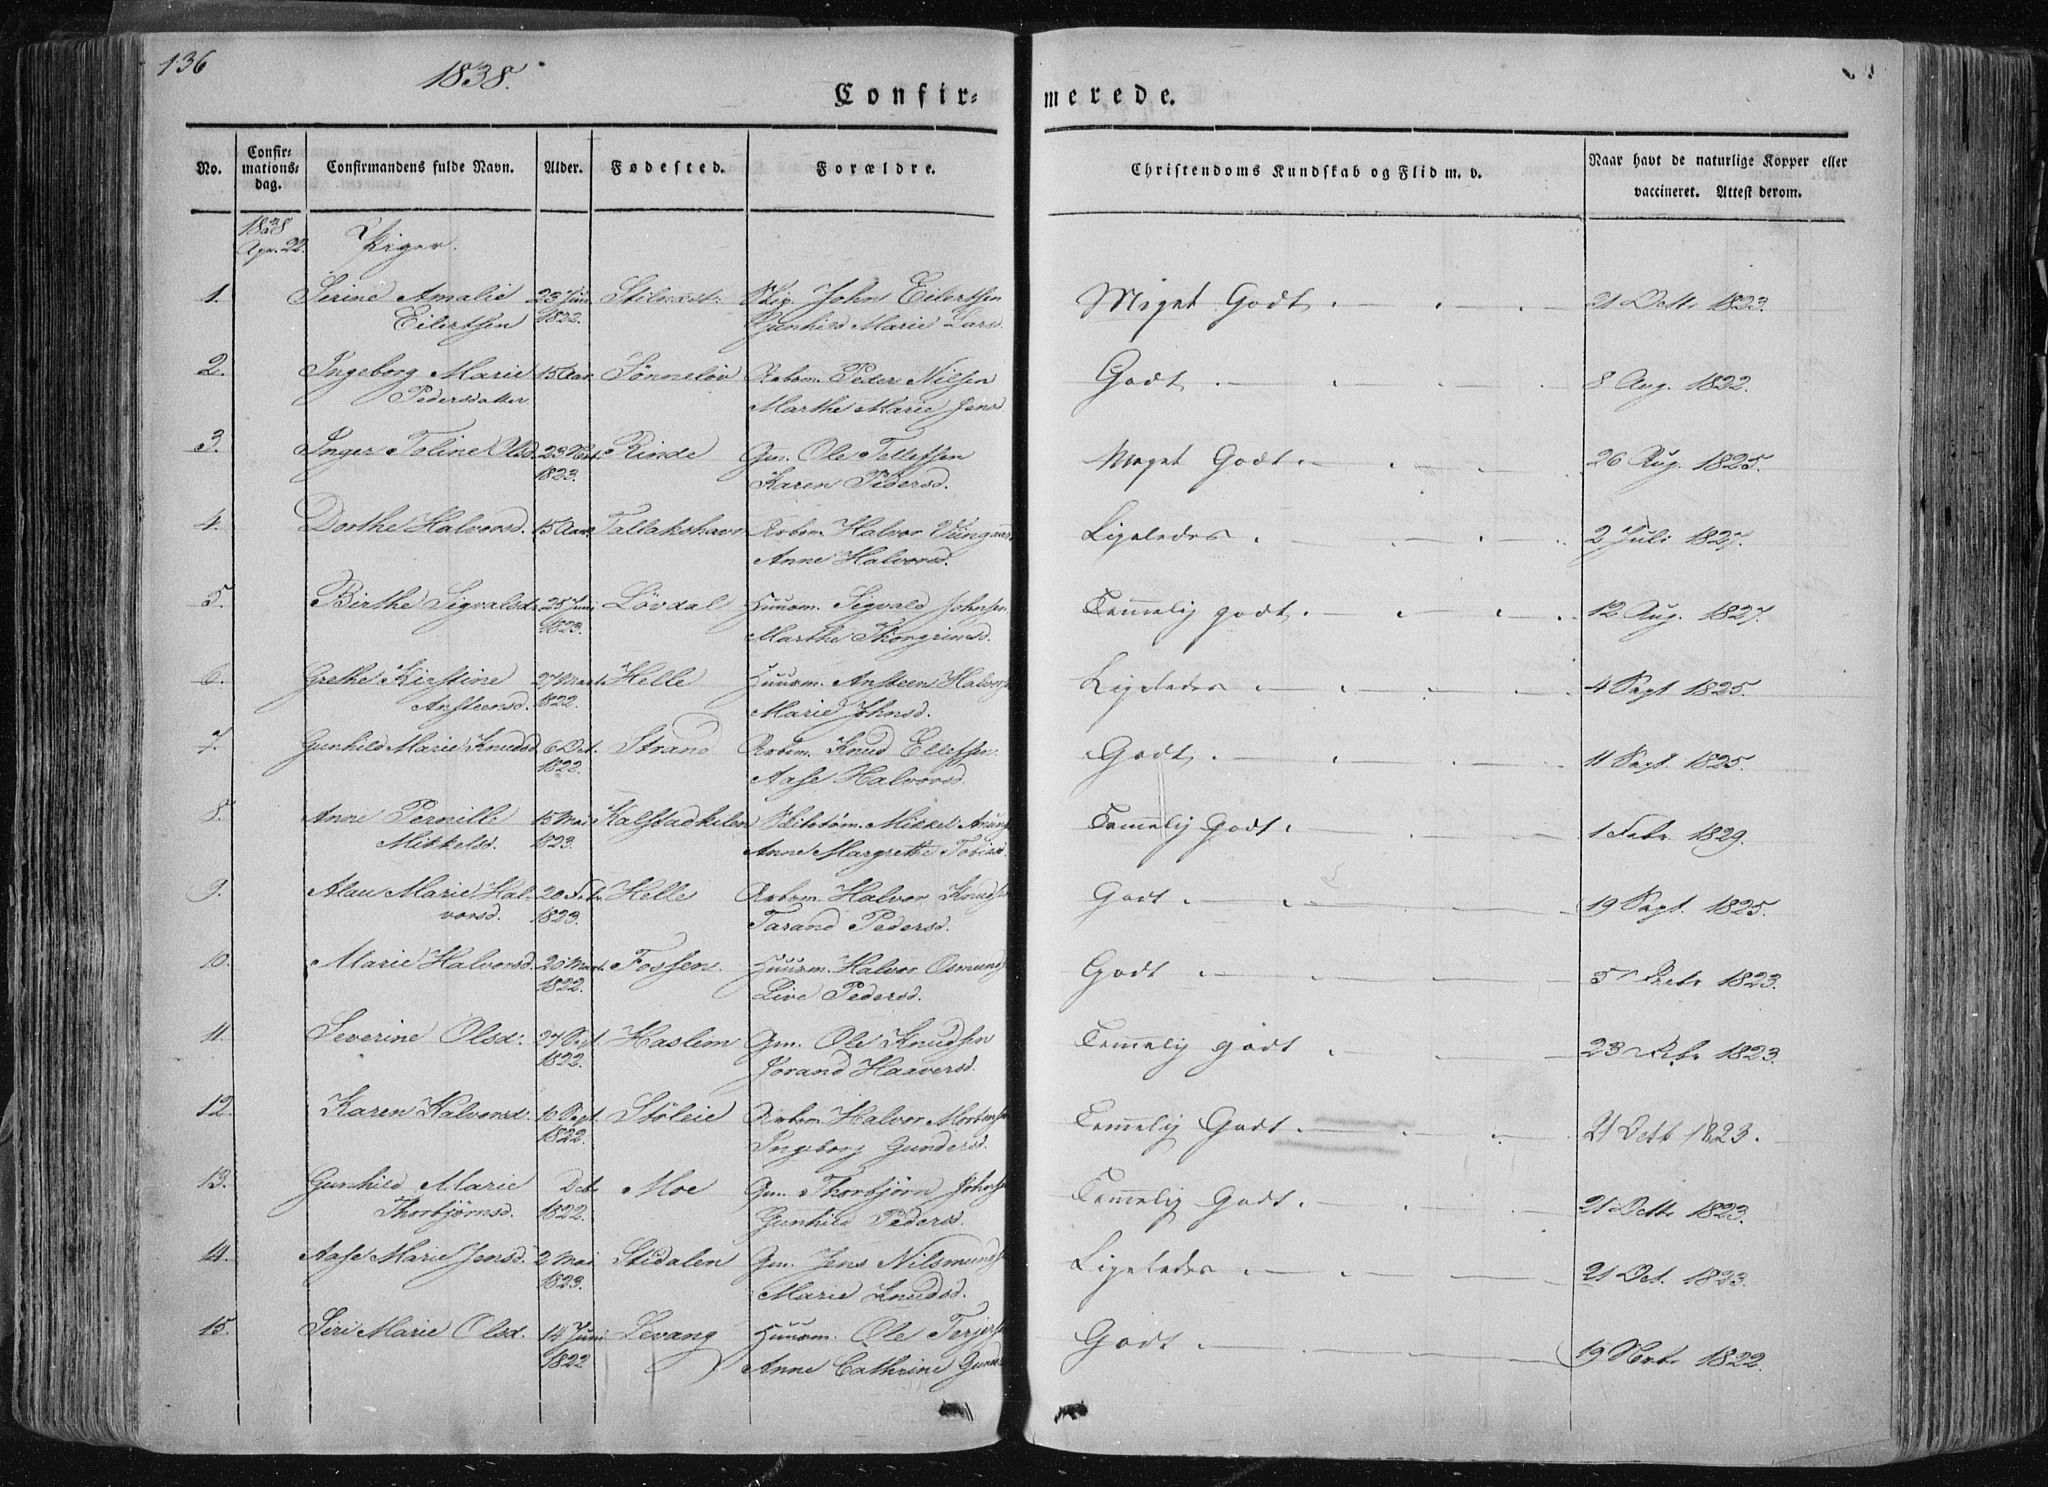 136
1838.
Confir- merede.
No. Confir-mations-dag. Confirmandens fulde Navn. Alder. Fødested. Forældre. Christendoms Kundskab og Flid m. v. Naar havt de naturlige Kopper eller vaccineret. Attest derom.
1838 Apr. 22. Piger.
1. Serine Amalie 23 Juni John Eilertsen Meget Godt 21 Octb 1823.
Eilertsen 1822. Gunhild Marie Larsd.
2. Ingeborg Marie 15 Aar. Sönneløv Arbm. Peder Nilsen Godt 8 Aug. 1822.
Pedersdatter. Marthe Marie Jensd.
3. Inger Toline Olsd. 23 Rinde Gm. Ole Tellefsen Meget Godt 26 Aug. 1825.
1823. Karen Pedersd.
4. Dorthe Halvorsd. 15 Aar. Tallakshavn Arbm. Halvor Ligeledes 2 Juli 1827.
Anne Halvorsd.
5. Birthe Sigvalsd. 25 Juni Lövdal Huusm. Sigvald Johnsen Temmelig godt 12 Aug. 1827.
1823. Marthe Thorgrimsd.
6. Grethe Kirstine 27 Mart. Helle Huusm. Ansteen Halvors Ligeledes 4 Sept 1825.
Ansteensd. 1822. Marie Johnsd.
7. Gunhild Marie Knudsd. 6 Oct. Strand Arbm. Knud Ellefsen Godt 11 Sept. 1825.
1822. Aase Halvorsd.
8. Anne Pernille 15 Mai Kalstadkilen Mikkel Temmelig Godt 1 Febr 1829.
Mikkelsd. 1823. Anne Margrethe Tobiasd.
9. Alau Marie Hal- 20 Febr Helle Arbm. Halvor Knuds Godt 19 Sept. 1825.
vorsd. 1823. Tarand Pedersd.
10. Marie Halvorsd. 20 Mart. Fossen Huusm. Halvor Osmunds Godt 5 1823.
1822. Live Pedersd.
11. Severine Olsd. 27 Sept. Haslem Gm. Ole Knudsen Temmelig godt 23 1823.
1822. Jorand Haaversd.
12. Karen Halvorsd. 10 Sept. Stöleie Arbm Halvor Mortens Temmelig Godt 21 Octb 1823.
1822. Ingeborg Gundersd.
13. Gunhild Marie Moe Gm. Thorbjörn Johns Temmelig Godt 21 Octb 1823.
Thorbjörnsd. 1822. Gunhild Pedersd.
14. Aase Marie Jensd. 2 Mai Stidalen Gm. Jens Nilsmunds Ligeledes 21 Oct. 1823.
1823. Marie Knudsd.
15. Siri Marie Olsd. 14 Juni Levang Huusm. Ole Terjes Godt 19 Novbr 1822.
1822 Anne Cathrine